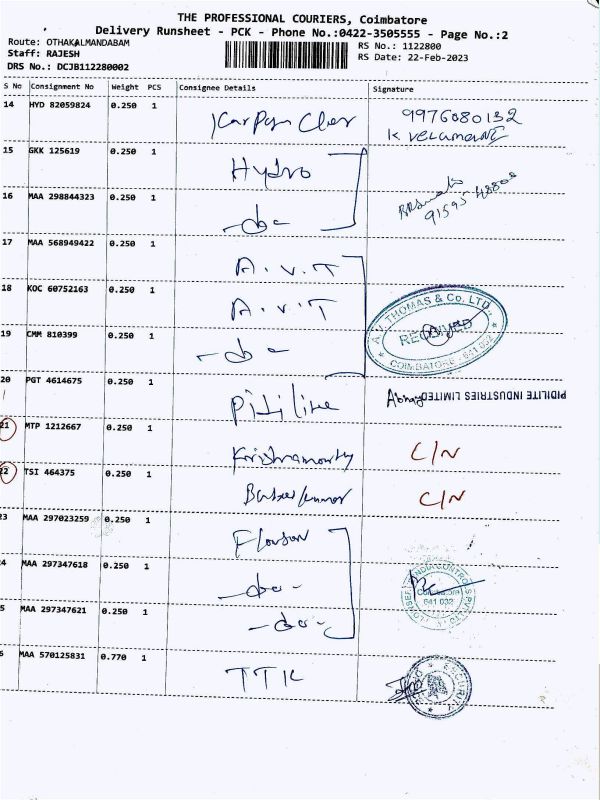 THE PROFESSIONAL COURIERS, Coimbatore
Delivery Runsheet - PCK - Phone No.:0422-3505555 - Page No.:2
Route: OTHAKALMANDABAM
Staff: RAJESH
RS No.: 1122800
RS Date: 22-Feb-2023
DRS No.: DCJB112280002
S No Consignment No Weight PCS Consignee Details Signature
14 HYD 82059824 0.250 1 9976080132
K VELUMANI
15 GKK 125619 0.250 1 Hydro
16 MAA 298844323 0.250 1 -do-
17 MAA 568949422 0.250 1 A.V.T
18 KOC 60752163 0.250 1 A.V.T
A.V. THOMAS & Co. LTD.
RECEIVED
COIMBATORE - 641 032
19 CMM 810399 0.250 1 -do-
20 PGT 4614675 0.250 1 Pidilite PIDILITE INDUSTRIES LIMITED
21 MTP 1212667 0.250 1 Krishnamorthy C/N
22 TSI 464375 0.250 1 C/N
3 MAA 297023259 0.250 1
4 MAA 297347618 0.250 1 -do-
Coimbatore
641 032
5 MAA 297347621 0.250 1 -do-
6 MAA 570125831 0.770 1 TTK